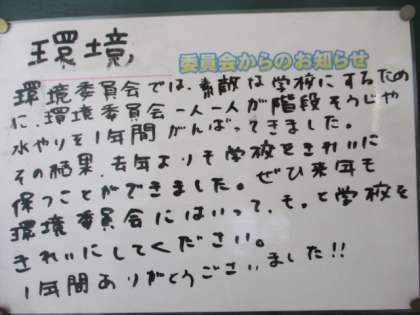 環境
委員会からのお知らせ
環境委員会では、素敵な学校にするため
に、環境委員会一人一人が階段そうじや
水やりを1年間がんばってきました。
その結果、去年よりも学校をきれいに
保つことができました。ぜひ来年も
環境委員会にはいって、もっと学校を
きれいにしてください。
1年間ありがとうございました!!